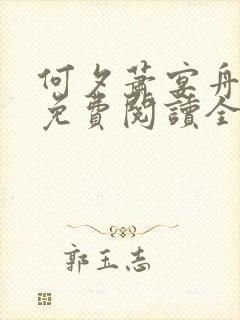 何夕蕭宴舟
免費閱讀全
郭玉志